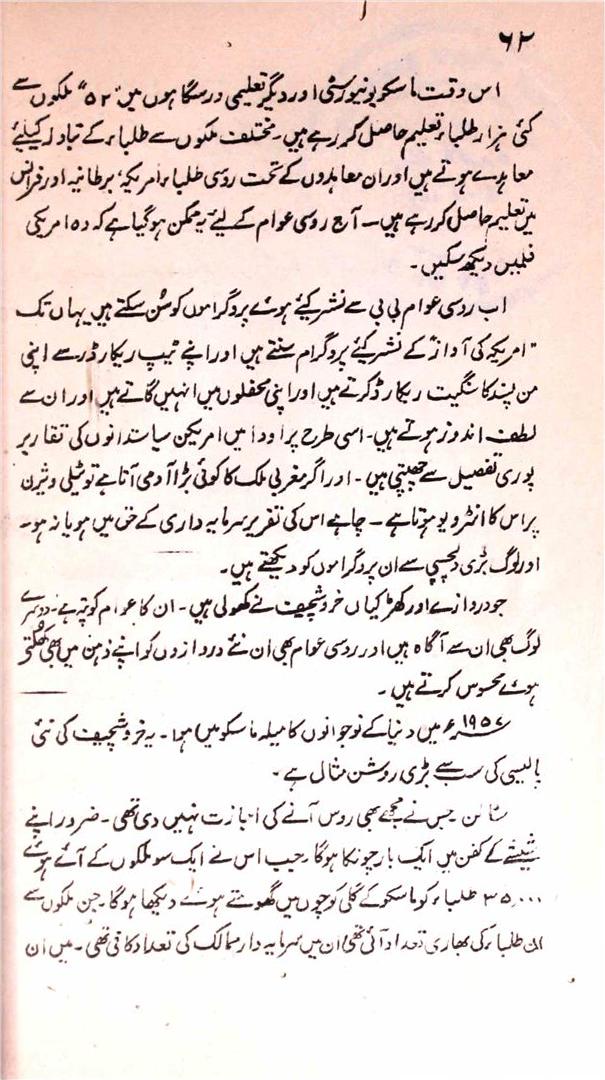 ۶۲
اس وقت ماسکو یونیورسٹی اور دیگر تعلیمی درسگاہوں میں "۵۲" ملکوں سے
کئی ہزار طلباء تعلیم حاصل کر رہے ہیں۔ مختلف ملکوں سے طلباء کے تبادلہ کیلئے
معاہدے ہوتے ہیں اور ان معاہدوں کے تحت روسی طلباء امریکہ، برطانیہ اور فرانس
میں تعلیم حاصل کر رہے ہیں۔ آج روسی عوام کے لیئے یہ ممکن ہو گیا ہے کہ وہ امریکی
فلمیں دیکھ سکیں۔
اب روسی عوام بی بی سے نشر کیئے ہوئے پروگراموں کو سُن سکتے ہیں یہاں تک
"امریکہ کی آواز" کے نشر کیئے پروگرام سنتے ہیں اور اپنے ٹیپ ریکارڈر سے اپنی
من پسند کا سنگیت ریکارڈ کرتے ہیں اور اپنی محفلوں میں انہیں گاتے ہیں اور ان سے
لطف اندوز ہوتے ہیں۔ اسی طرح پراودا میں امریکن سیاستدانوں کی تقاریر
پوری تفصیل سے چھپتی ہیں۔ اور اگر مغربی ملک کا کوئی بڑا آدمی آتا ہے تو ٹیلی ویژن
پر اس کا انٹرویو ہوتا ہے۔ چاہے اس کی تقریر سرمایہ داری کے حق میں ہو یا نہ ہو۔
اور لوگ بڑی دلچسپی سے ان پروگراموں کو دیکھتے ہیں۔
جو دروازے اور کھڑکیاں خروشچیف نے کھولی ہیں۔ ان کا عوام کو پتہ ہے۔ دوسرے
لوگ بھی ان سے آگاہ ہیں اور روسی عوام بھی ان نئے دروازوں کو اپنے ذہن میں بھی کھلتی
ہوئے محسوس کرتے ہیں۔
۱۹۵۷ء میں دنیا کے نوجوانوں کا میلہ ماسکو میں ہوا۔ یہ خروشچیف کی نئی
پالیسی کی سب سے بڑی روشن مثال ہے۔
سٹالن جس نے مجھے بھی روس آنے کی اجازت نہیں دی تھی۔ ضرور اپنے
شیشے کے کفن میں ایک بار چونکا ہوگا۔ جب اس نے ایک سو ملکوں کے آئے ہوئے
۳۵,۰۰۰ طلباء کو ماسکو کے گلی کوچوں میں گھومتے ہوئے دیکھا ہوگا۔ جن ملکوں سے
ان طلباء کی بھاری تعداد آئی تھی ان میں سرمایہ دار ممالک کی تعداد کافی تھی۔ میں ان